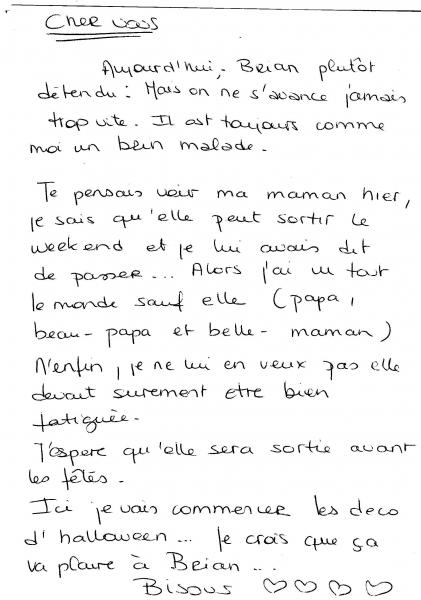 Cher vous
Aujourd'hui, Brian plutôt
détendu : Mais on ne s'avance jamais
trop vite. Il est toujours comme
moi un bein malade.
Je pensais voir ma maman hier,
je sais qu'elle peut sortir le
weekend et je lui avais dit
de passer... Alors j'ai vu tout
le monde sauf elle (papa,
beau-papa et belle-maman)
N'enfin, je ne lui en veux pas elle
devait surement etre bien
fatiguée.
J'espere qu'elle sera sortie avant
les fêtes.
Ici je vais commencer les deco
d'halloween... Je crois que ça
va plaire à Brian...
Bisous ♡♡♡♡